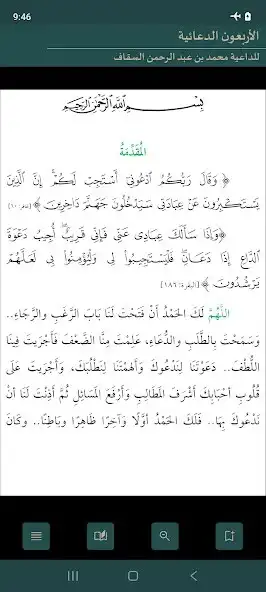 9:46
الأربعون الدعائية
للداعية محمد بن عبد الرحمن السقاف
بِسْمِ اللَّهِ الرَّحْمَنِ الرَّحِيمِ
المُقَدِّمَةُ
﴿ وَقَالَ رَبُّكُمُ ٱدْعُونِىٓ أَسْتَجِبْ لَكُمْ ۚ إِنَّ ٱلَّذِينَ
يَسْتَكْبِرُونَ عَنْ عِبَادَتِى سَيَدْخُلُونَ جَهَنَّمَ دَاخِرِينَ ﴾
﴿وَإِذَا سَأَلَكَ عِبَادِى عَنِّى فَإِنِّى قَرِيبٌ ۖ أُجِيبُ دَعْوَةَ
ٱلدَّاعِ إِذَا دَعَانِ ۖ فَلْيَسْتَجِيبُوا۟ لِى وَلْيُؤْمِنُوا۟ بِى لَعَلَّهُمْ
يَرْشُدُونَ ﴾ [البقرة: ١٨٦]
اللَّهُمَّ لَكَ الحَمْدُ أَنْ فَتَحْتَ لَنَا بَابَ الرَّغَبِ وَالرَّجَاءِ..
وَسَمَحْتَ بِالطَّلَبِ وَالدُّعَاءِ، عَلِمْتَ مِنَّا الضَّعْفَ فَأَجْرَيتَ فِينَا
اللُّطْفَ.. دَعَوْتَنَا لِنَدْعُوكَ وَأَلْهَمْتَنَا لِنَطْلُبَكَ، وَأَجْرَيتَ عَلَى
قُلُوبِ أَحْبَابِكَ أَشْرَفَ المَطَالِبِ وَأَرْفَعَ المَسَائِلِ ثُمَّ أَذِنْتَ لَنَا أَنْ
نَدْعُوكَ بِهَا.. فَلَكَ الحَمْدُ أَوَّلًا وَآخِرًا ظَاهِرًا وَبَاطِنًا.. وَكَانَ